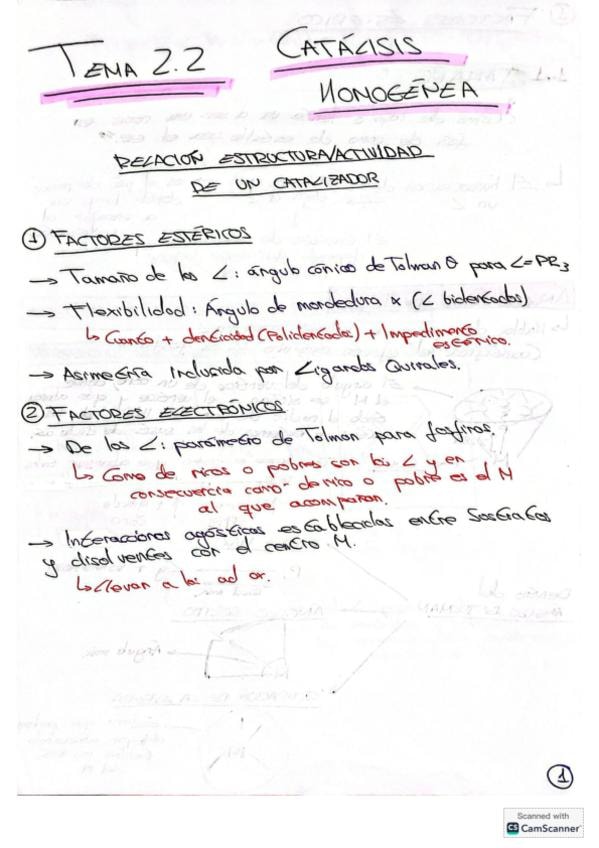 TEMA 2.2 CATÁLISIS
HOMOGÉNEA
RELACIÓN ESTRUCTURA/ACTIVIDAD
DE UN CATALIZADOR
① FACTORES ESTÉRICOS
→ Tamaño de los L: ángulo cónico de Tolman θ para L=PR3
→ Flexibilidad: Ángulo de mordedura α (L bidentados)
↳ Cuanto + densidad (Polidentados) + Impedimento
estérico.
→ Asimetría Inducida por Ligandos Quirales.
② FACTORES ELECTRÓNICOS
→ De los L: parámetro de Tolman para fosfinas.
↳ Como de ricos o pobres son los L y en
consecuencia como de rico o pobre es el M
al que acompañan.
→ Interacciones agósticas establecidas entre Sustratos
y disolventes con el centro M.
↳ Llevan a la ad ox.
1
Scanned with
CS CamScanner